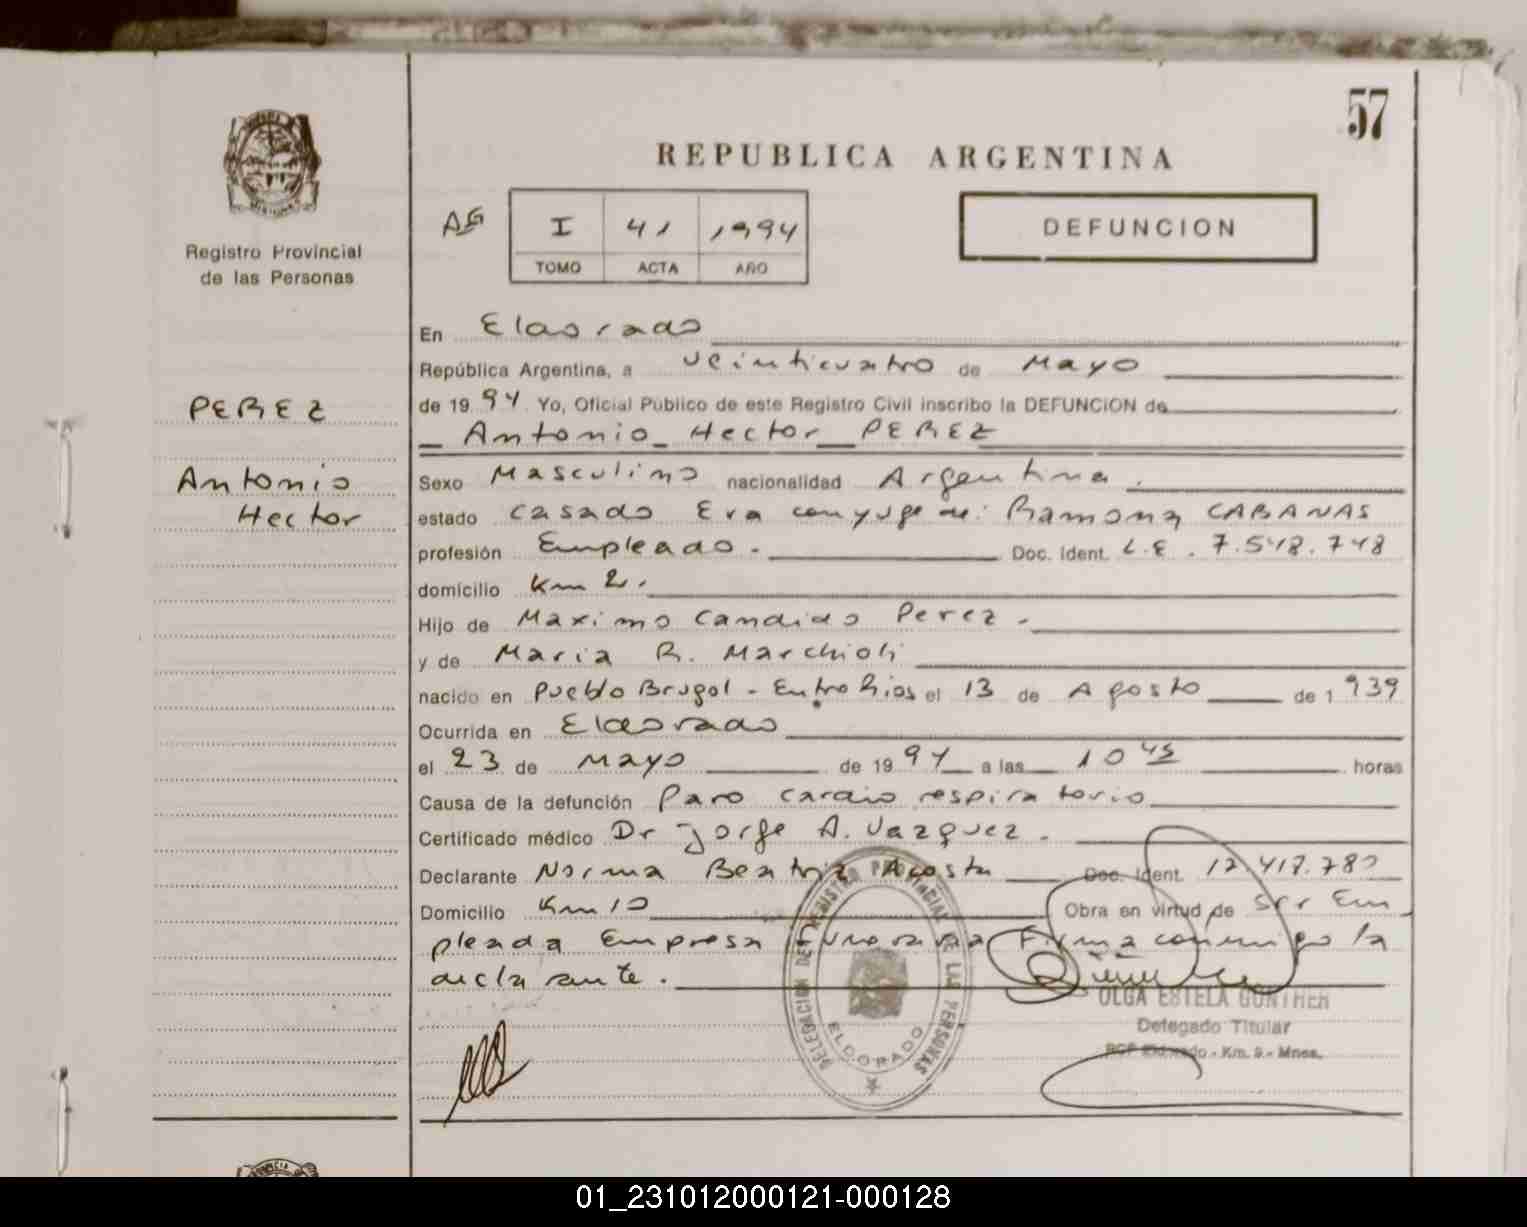 57
REPUBLICA ARGENTINA
AG I 41 1994
TOMO ACTA AÑO
DEFUNCION
Registro Provincial
de las Personas
En Eldorado
República Argentina, a veinticuatro de Mayo
PEREZ
de 19 94 Yo, Oficial Público de este Registro Civil inscribo la DEFUNCION de
Antonio Hector PEREZ
Antonio
Hector
Sexo Masculino nacionalidad Argentina.
estado casado Era conyuge de: Ramona CABANAS
profesión Empleado. Doc. Ident. L.E. 7.548.748
domicilio Km 2.
Hijo de Maximo Candido Perez.
y de Maria R. Marchioli
nacido en Pueblo Brugol - Entre Rios el 13 de Agosto de 1 939
Ocurrida en Eldorado
el 23 de Mayo de 19 94 a las 10 45 horas
Causa de la defunción Paro cardio respiratorio
Certificado médico Dr Jorge A. Vazquez.
Declarante Norma Beatriz Acosta Doc. Ident. 12.417.780
Domicilio Km 10 Obra en virtud de Ser Em
pleada Empresa Funeraria Firma conmigo la
declarante.
DELEGACION DEL REGISTRO PROVINCIAL DE LAS PERSONAS
ELDORADO
OLGA ESTELA GUNTHER
Delegado Titular
RCP Eldorado - Km. 9 - Mnes.
01_231012000121-000128